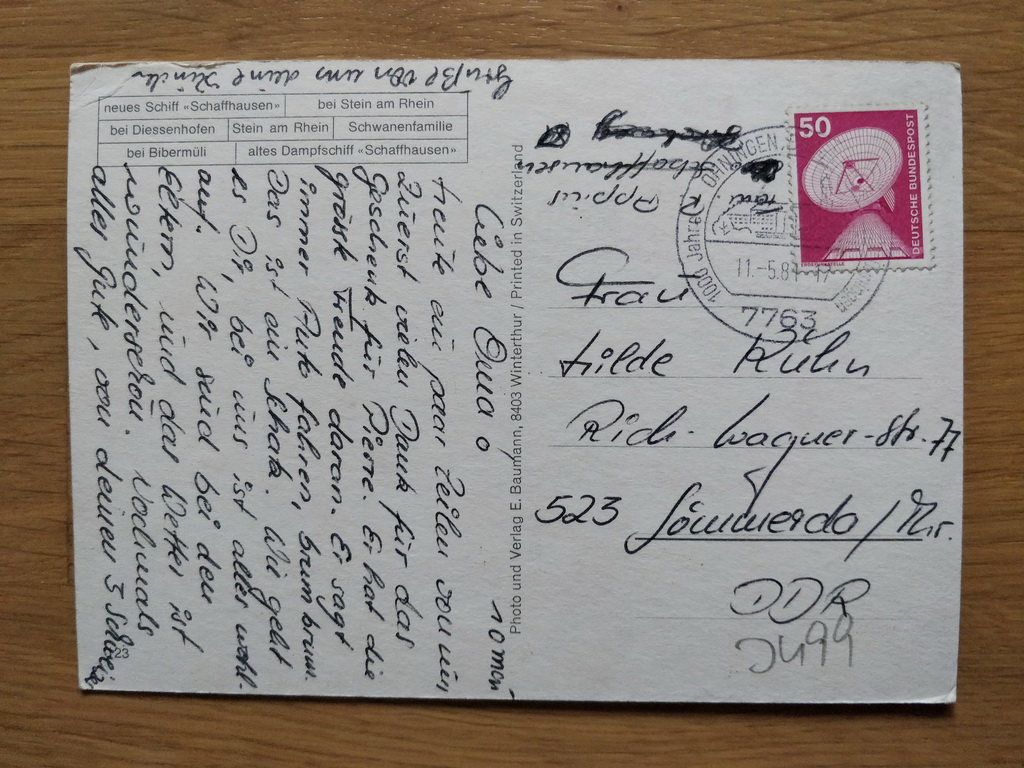 neues Schiff «Schaffhausen» bei Stein am Rhein
bei Diessenhofen Stein am Rhein Schwanenfamilie
bei Bibermüli altes Dampfschiff «Schaffhausen»
10 Mai
Liebe Oma
Heute ein paar Zeilen von uns
Zuerst vielen Dank für das
Geschenk für Pierre. Er hat die
grösste Freude daran. Er sagt
immer Auto fahren, brum brum.
Das ist ein Schatz. Wie geht
es Dir, bei uns ist alles wohl-
auf. Wir sind bei den
Eltern, und das Wetter ist
wunderschön. Nochmals
alles Gute, von deinen 3 Schweizer
Grüße von uns deine Kinder
23
Photo und Verlag E. Baumann, 8403 Winterthur / Printed in Switzerland
Fam.
Appius
Schaffhausen
50
DEUTSCHE BUNDESPOST
ERDEFUNKSTELLE
1000 Jahre
ÖHNINGEN
11.-5.81-17
7763
Frau
Hilde Kuhn
Rich.-Wagner-Str. 77
523 Sömmerda/Thr.
DDR
J499